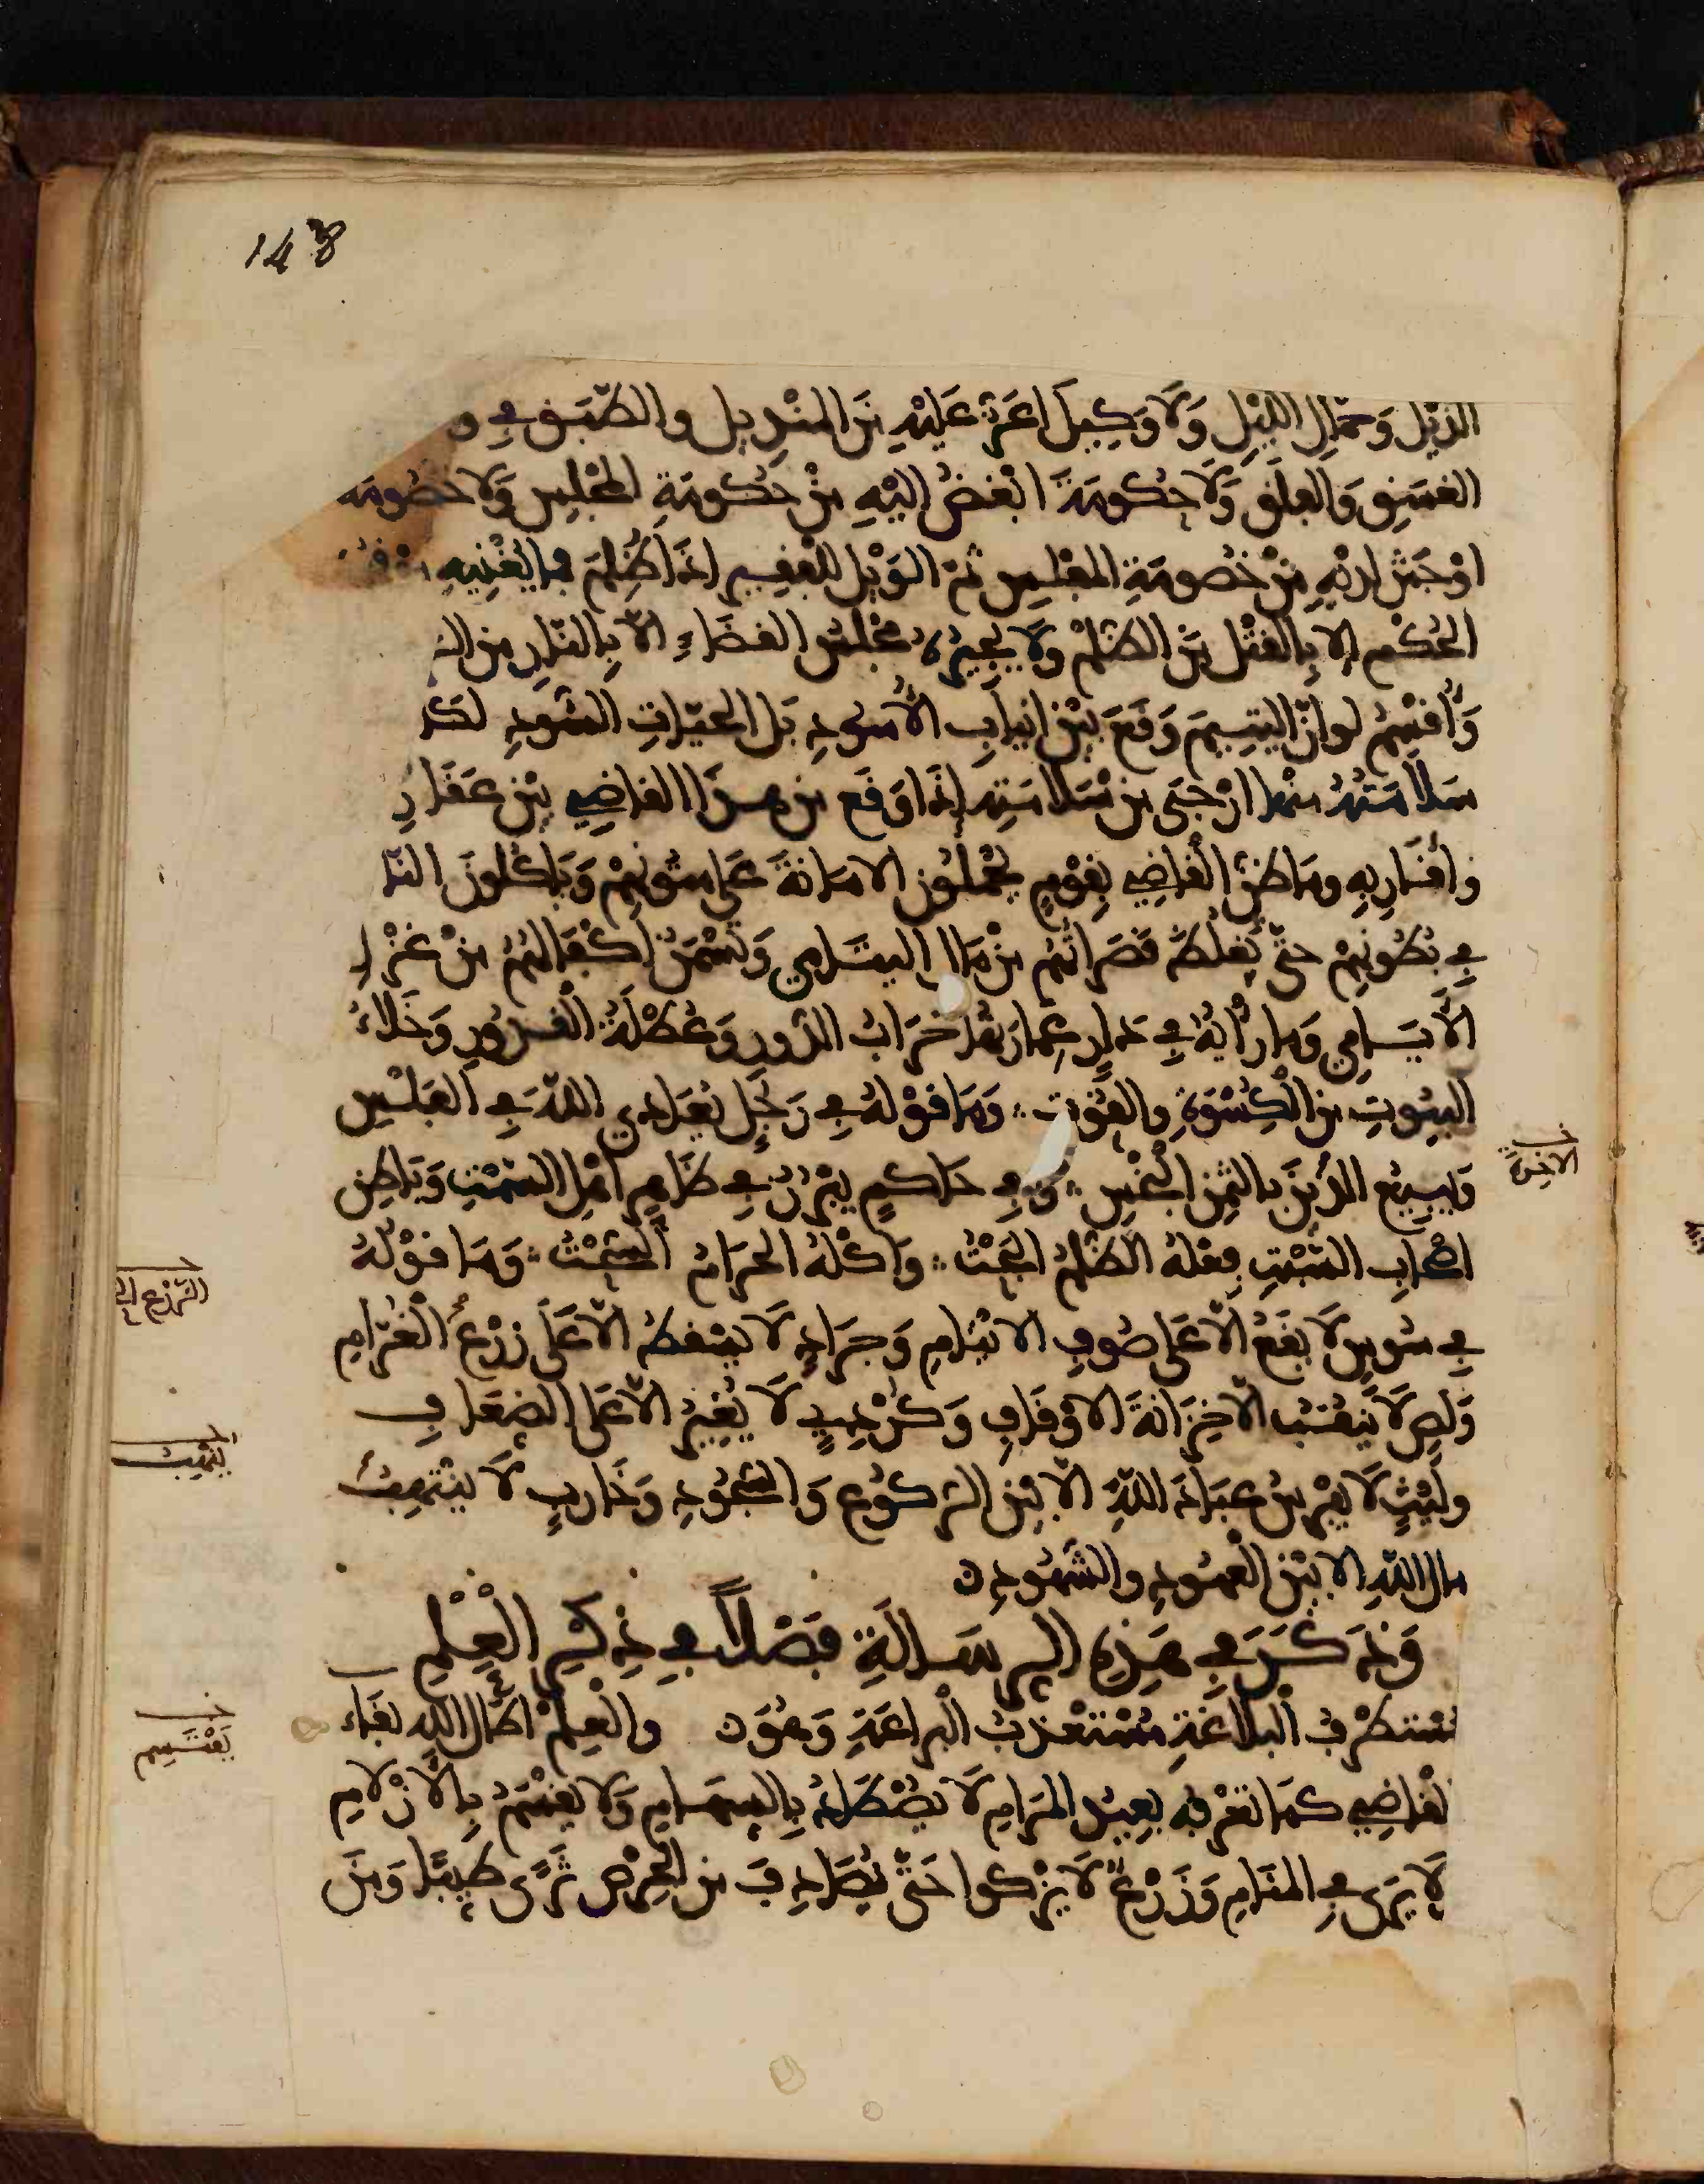 143
8
الذيل وَحمّالِ الليْلِ وَلَا وَكيلَ اعَزّ عَلَيْهِ مِنَ المنْديل والطّبَق في و
الغسَقِ وَالفلَقِ وَلَا حكومَةً ابْغضُ اليْهِ مِنْ حكومَةِ المجْلسِ وَلَا خصُومَة
اوْحَشُ لديْهِ مِنْ خصُومَةِ المفْلسِ ثمّ الوَيْل للفقِيرِ اذَا ظُلِمَ فما يُغْنِيهِ
الحُكْم الا بِالقتْل مِنَ الظلْم ولا يُجيرُهُ مجْلسُ القضَاءِ الّا بِالنّارِ من الر
وَأُقسِمُ لو انّ اليتِيمَ وَقعَ بيْنَ انيابِ الأُسُودِ بَل الحيّاتِ السّودِ لكا
سَلامَتُهُ منْهَا ارْجَى من سَلامَتِه إذَا وَقَع من هـذَا القاضِي بيْن عَقَارِ
وأقَارِبِه ومَا ظنّ القاضِي بِقوْمٍ يحْملُونَ الامَانةَ عَلى متُونِهِمْ وَيَاكلُونَ النّا
في بُطُونِهِمْ حتّى تغلظَ قصَرَاتُهُم منْ مَال اليتَـامى وَتَسْمَنُ اكْفَالهُم منْ غزْل
الأيَـامى وَمَا رأيُهُ في دَارٍ عِمارَتهَا خرَابُ الدّورِ وَعُطْلَةُ القـدُورِ وَخَلاءُ
البيُوتِ من الكِسْوَةِ والقُوت . وَمَا قوْلهُ في رَجُلٍ يُعَادي اللّهَ في الفَلْسِ
وَيبيعُ الدّينَ بالثمنِ البَخْسِ . وَفي حَاكمٍ يبْرزُ في ظاهِرِ اهْلِ السّمْتِ وَبَاطِنِ
اصْحابِ السّبْتِ فِعْلهُ الظّلمُ البَحْتُ . وَاكْلُهُ الحرَامُ السُّحْتُ . وَمَا قوْلهُ
في سُوسٍ لَا يقَعُ الّا عَلى صُوفِ الايْتَامِ وَجرَادٍ لَا يسْقطُ الّا عَلَى زرْعِ الْغُرَامِ
وَلِصٍّ لَا يَنقُبُ الّا خِزَانَةَ الاوْقَافِ وَكُرْدِيٍّ لَا يُغِيرُ الّا عَلَى الضِعَافِ
ولَيْثٍ لَا يفْرسُ عِبَادَ اللّهِ الّا بيْن الرّكوُع وَالسّجُودِ وَخَارِبٍ لَا ينْتَهِبُ
مال اللّهِ الّا بيْن الْعهُودِ والشّهُودِ ن
وَذَكَرَ في هَـذِهِ الرسَـالَةِ فَصْلاً في ذِكْرِ الْعِلْمِ
مُسْتظرَفُ الْبلاغةِ مُسْتعْذبُ الْبراعَةِ وَهُوَ ن والْعِلْمُ اطَال اللّه بقَاء
القاضِي كمَا تعْرفه بعِيدُ المرَامِ لَا يصْطَادُ بِالسِهَـامِ وَلا يقسَمُ بِالأزْلامِ
لا يرَى في المنَامِ وَزَرْعٌ لَا يزْكوا حَتّى يُصَادِفَ من الْحرْص ثَرًى طيّبًا وَمنَ
خـ
الاخرَةَ
خـ
الزرع ال
اخـ
ينْهبُ
خـ
يُقْتَسِم